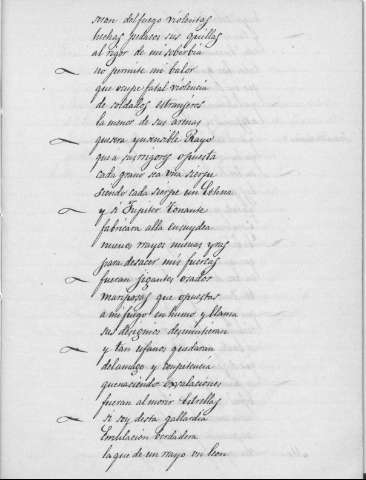 sean del fuego violentas
hechas pedasos sus quillas
al rigor de mi soberbia
no permite mi balor
que ocupe fatal violencia
de soldallos estranjeros
la menor de sus arenas
que sera ynsensible Rayo
que a sus rigores opuesta
cada grano sea vna sierpe
siendo cada sierpe un
y si Jupiter tonante
fabricara alla en su ydea
nuevos rayos nuevas yras
para desacer mis fuerças
fueran jigantes osados
mariposas que opuestas
a mi fuego en humo y llama
sus designios desmintieran
y tan ufanos quedaran
del amago y conpetencia
que naciendo exsalaciones
fueran al morir Estrellas
si soy desta gallardia
Emulacion berdadera
la que de un rayo vn leon